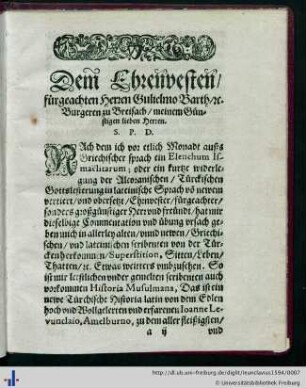 Dem Ehrenvesten/
fürgeachten Herren Gulielmo Barth/ ꝛc.
Burgeren zu Breisach/ meinem Gün-
stigen lieben Herren.
S. P. D.
NAch dem ich vor etlich Monadt auß
Griechischer sprach ein Elenchum Is-
maelitarum, oder ein kurtze widerle-
gung der Alcoranischen/ Türckischen
Gottslösterung in lateinische Sprach vō newem
vertiert/ und obersetz/ Ehrnvester/ fürgeachter/
sonders großgünstiger Herr und freündt/ hat mir
dieselbige Commentation und übung ursach ge-
ben auch in allerley alten/ und newen/ Griechi-
schen/ und lateinischen scribenten von der Tür-
cken herkommen/ Superstition, Sitten/ Leben/
Thatten/ ꝛc. Etwas weitters umbzusehen. So
ist mir letstlich under gemelten scribenten auch
vorkommen Historia Musulmana, Das ist ein
newe Türckische Historia latin von dem Edlen
hoch und Wollgelerten und erfarenen Ioanne Le-
vunclaio, Amelburno, zu dem aller fleißigsten/
a ij und
http://dl.ub.uni-freiburg.de/diglit/leunclavius1594/0007
© Universitätsbibliothek Freiburg